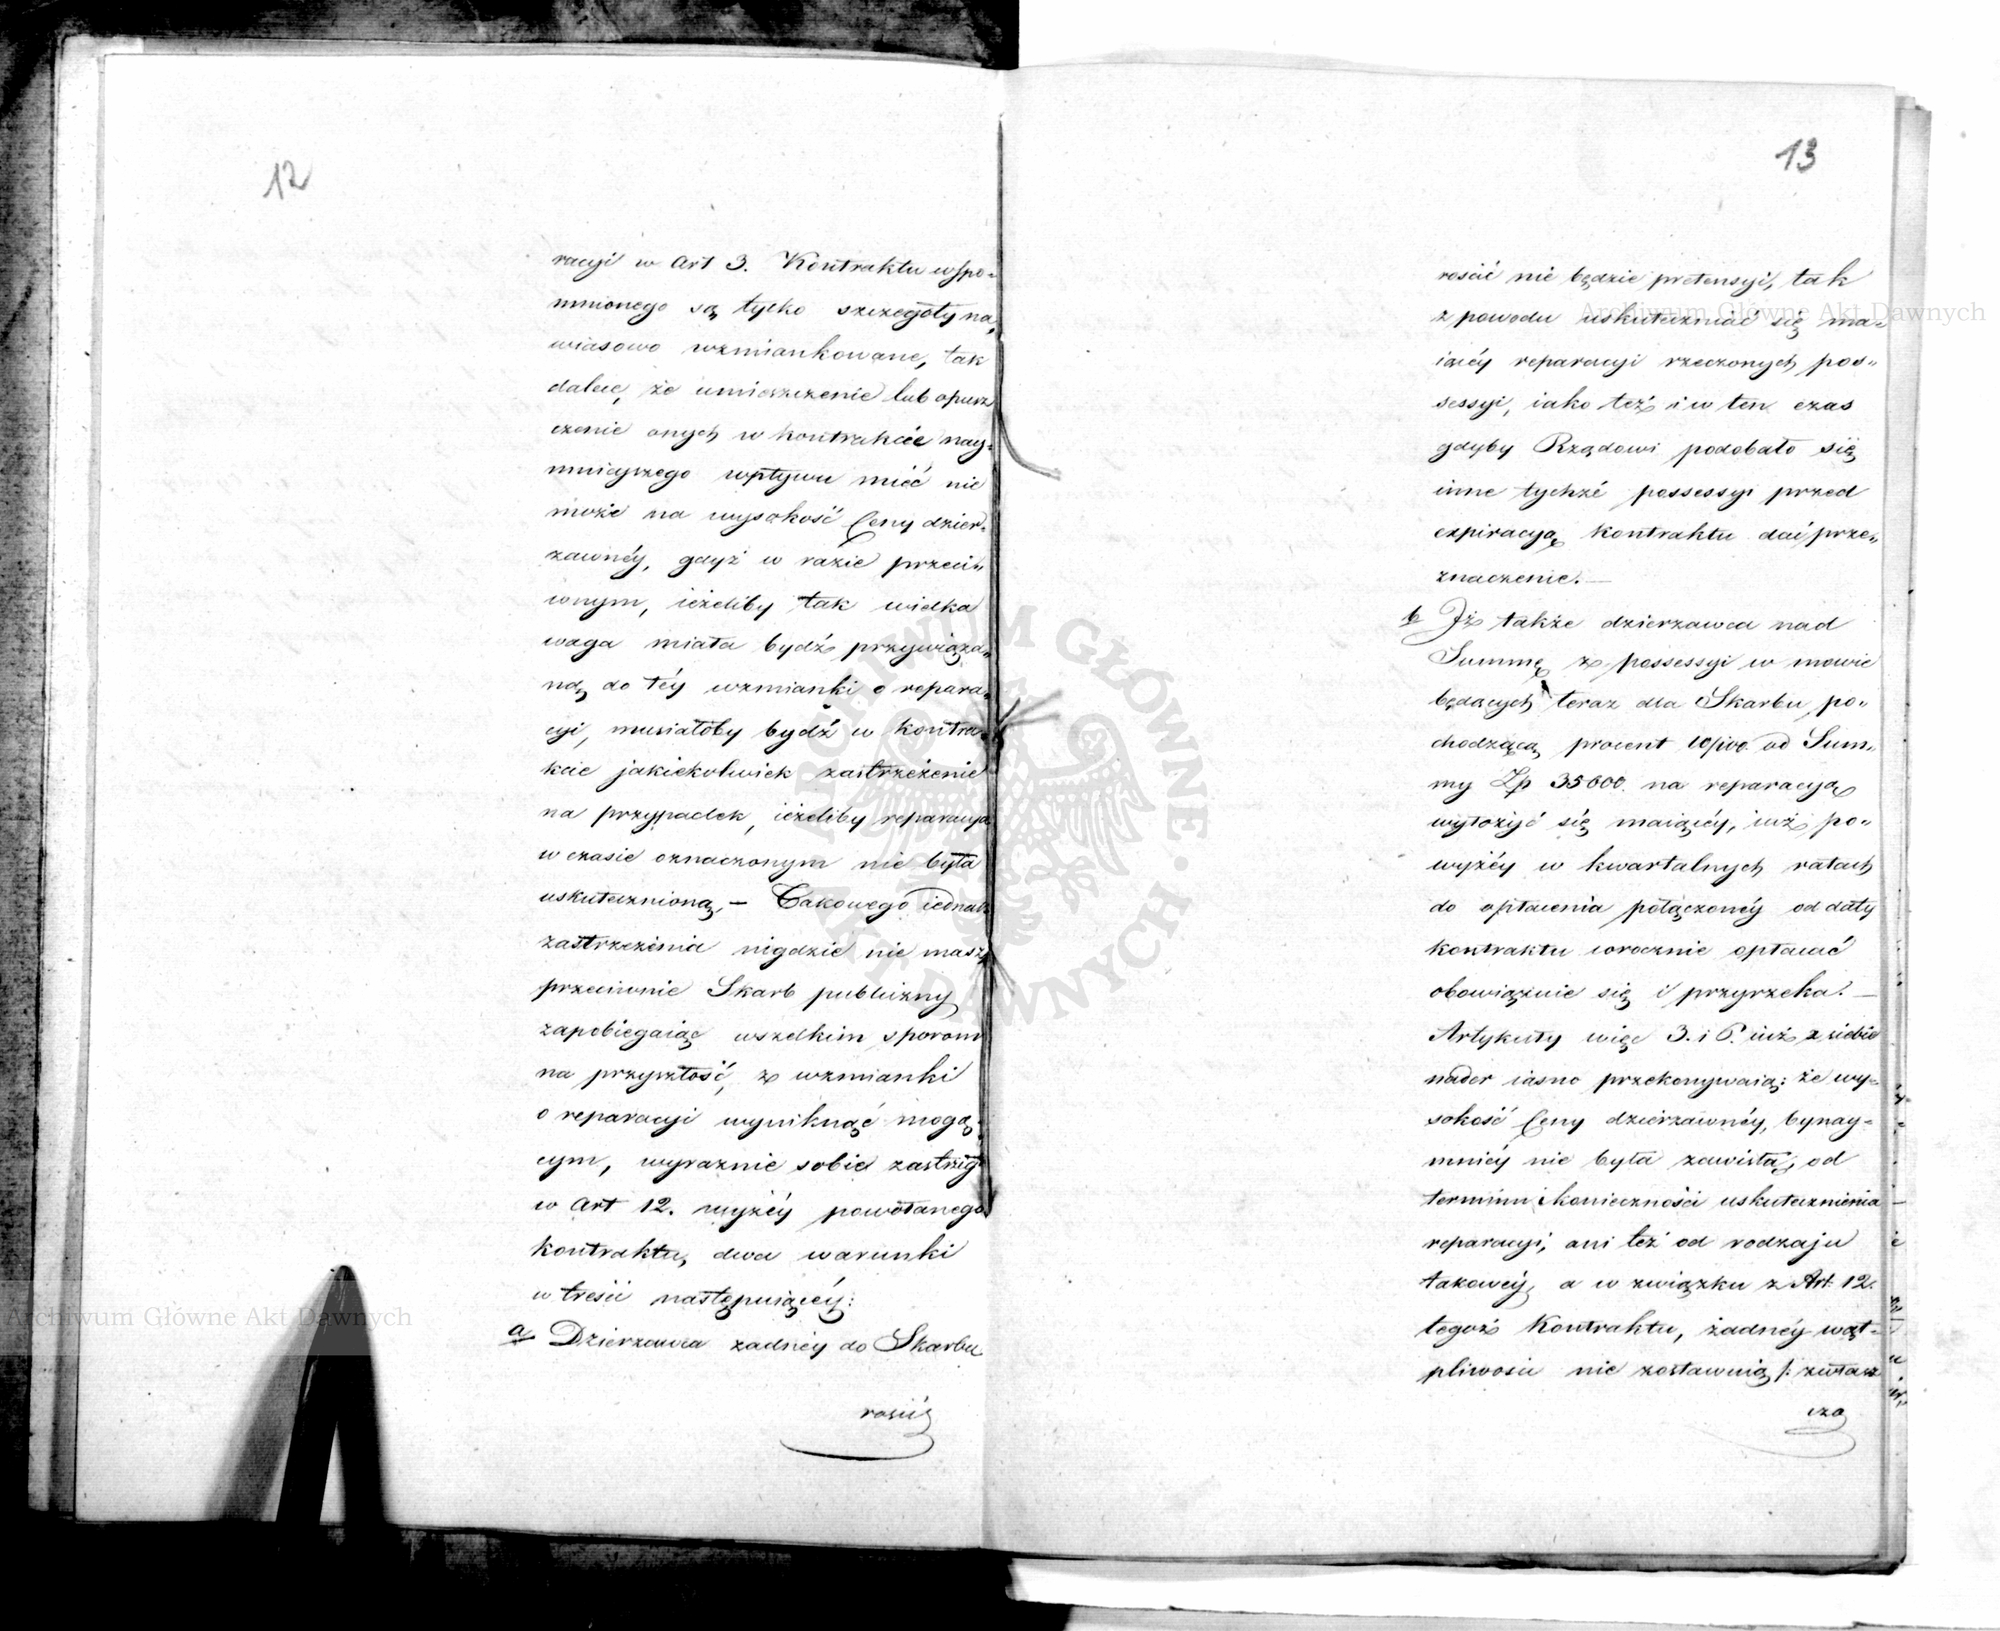 12
racyi w Art 3. Kontraktu wspo„
mnionego są tylko szczegóły na„
wiasowo wzmiankowane, tak
dalece, że umieszczenie lub opusz
czenie onych w kontrakcie nay„
mnieyszego wpływu mieć nie
może na wysokość Ceny dzier„
żawnéy, gdyż w razie przeci„
wnym, ieżeliby tak wielka
waga miała bydź przywiąza„
ną do téy wzmianki o repara„
cyi, musiałoby bydź w kontra„
kcie jakiekolwiek zastrzeżenie
na przypadek, ieżeliby reparacya
w czasie oznaczonym nie była
uskutecznioną, – Takowego iednak
zastrzeżenia nigdzie nie masz
przeciwnie Skarb publiczny
zapobiegaiąc wszelkim sporom
na przyszłość, z wzmianki
o reparacyi wyniknąć mogą„
cym, wyraznie sobie zastrzegł
w Art 12. wyżéy powołanego
kontraktu, dwa warunki
w treści następuiącéy:
a Dzierzawca zadnéy do Skarbu
rościć
13
rościć nie będzie pretensyi, tak
z powodu uskuteczniać się ma„
iącéy reparacyi rzeczonych pos„
sessyi, iako też i w ten czas
gdyby Rządowi podobało się
inne tychże possessyi przed
expiracyą kontraktu dać prze„
znaczenie. —
b Iż także dzierzawca nad
Summę z possessyi w mowie
będących teraz dla Skarbu po„
chodzącą procent 10/100 od Sum„
my Zp 35000. na reparacyą
wyłożyć się maiącéy, iuż po„
wyżéy w kwartalnych ratach
do opłacenia połączonéy od daty
kontraktu corocznie opłacać
obowiązuie się i przyrzeka. —
Artykuły więc 3. i 6. iuż z siebie
nader iasno przekonywaią: że wy„
sokość Ceny dzierzawnéy, bynay„
mniéy nie była zawisłą, od
terminu i konieczności uskutecznienia
reparacyi, ani też od rodzaju
takowéy, a w związku z Art. 12.
tegoż Kontraktu, żadnéy wąt„
pliwości nie zostawuią /: zwłasz
cza
Archiwum Główne Akt Dawnych
Archiwum Główne Akt Dawnych
ARCHIWUM GŁÓWNE AKT DAWNYCH